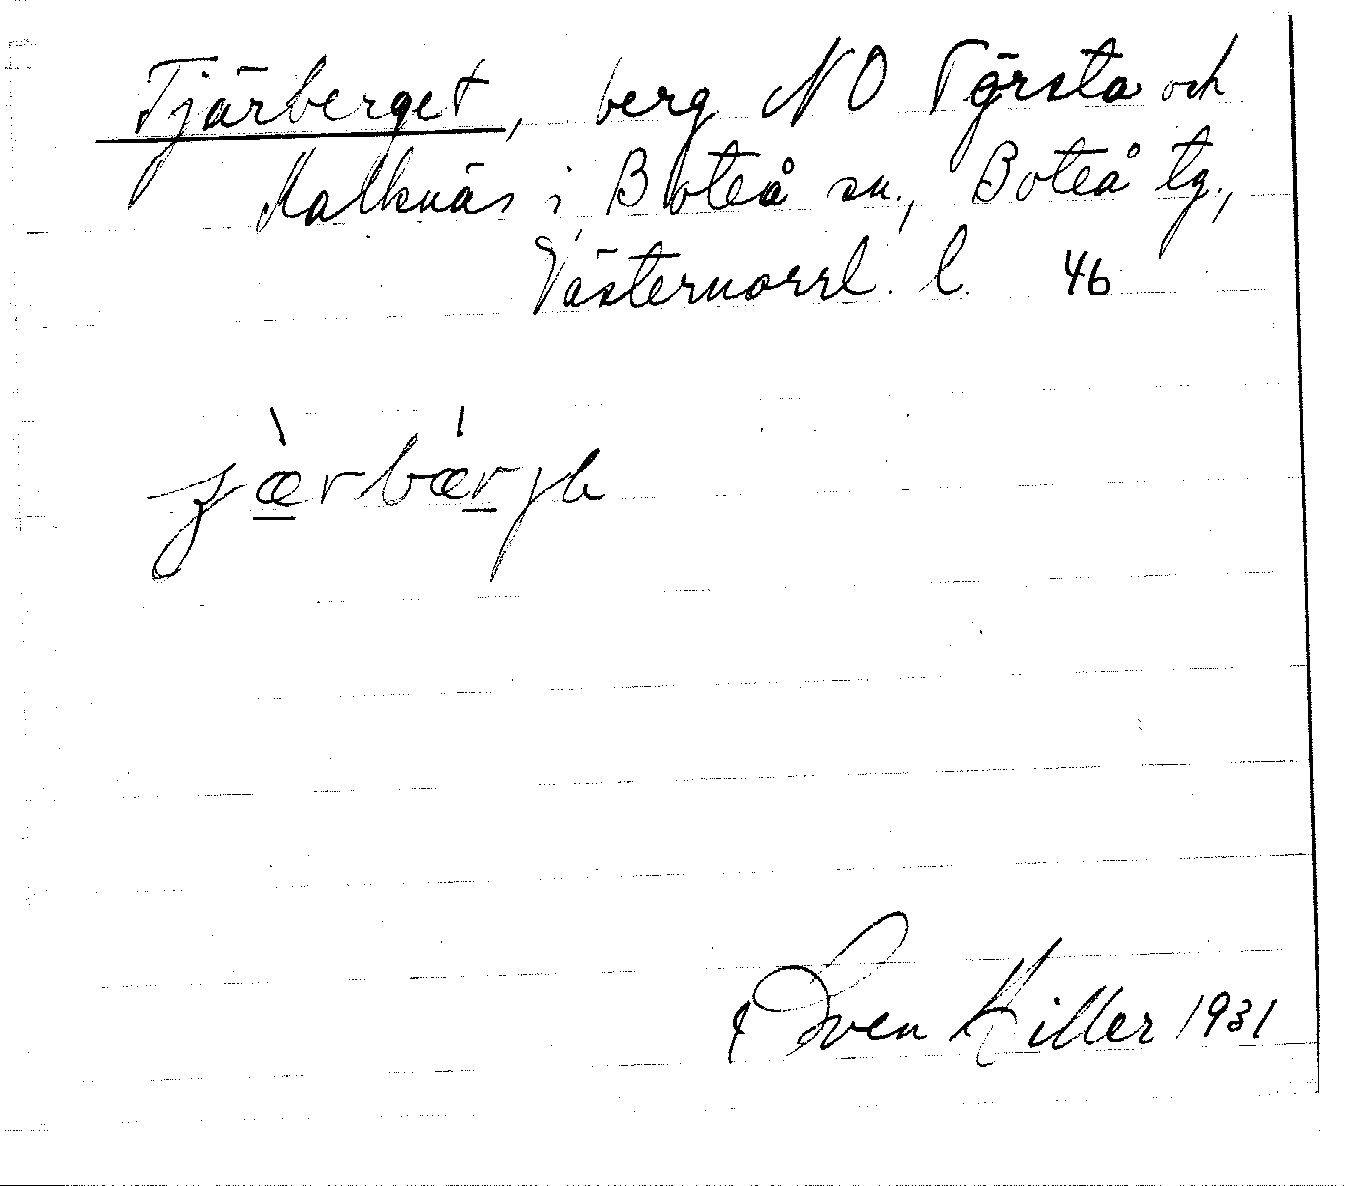 Tjärberget, berg NO Pärsta och
Kalknäs i Boteå sn., Boteå tg.,
Västernorrl. l. 46
Sven Hiller 1931